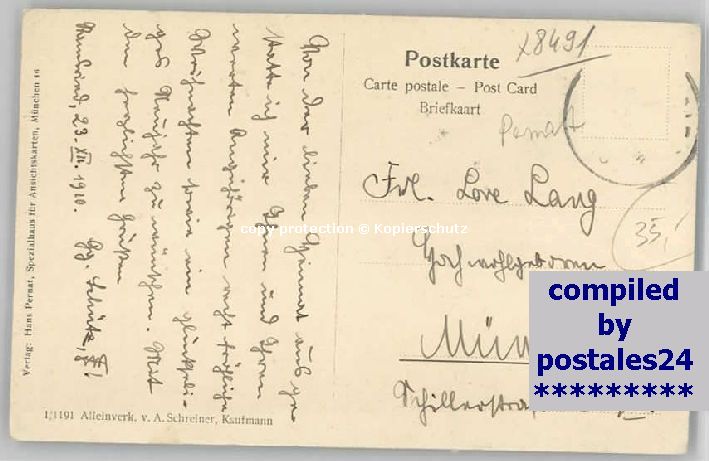 Postkarte
Carte postale – Post Card
Briefkaart
78491
Pernat
Frl. Lore Lang
Hochwohlgeboren
Mün
Schillerstraße
35,-
Von der lieben Heimat aus ge-
statte ich mir Ihnen und Ihren
werten Angehörigen recht fröhliche
Weihnachten sowie ein glückseli-
ges Neujahr zu wünschen. Mit
den herzlichsten Grüßen
23. XII. 1910.
Verlag: Hans Pernat, Spezialhaus für Ansichtskarten, München 16
1/1191 Alleinverk. v. A. Schreiner, Kaufmann
copy-protection © Kopierschutz
compiled
by
postales24
*********